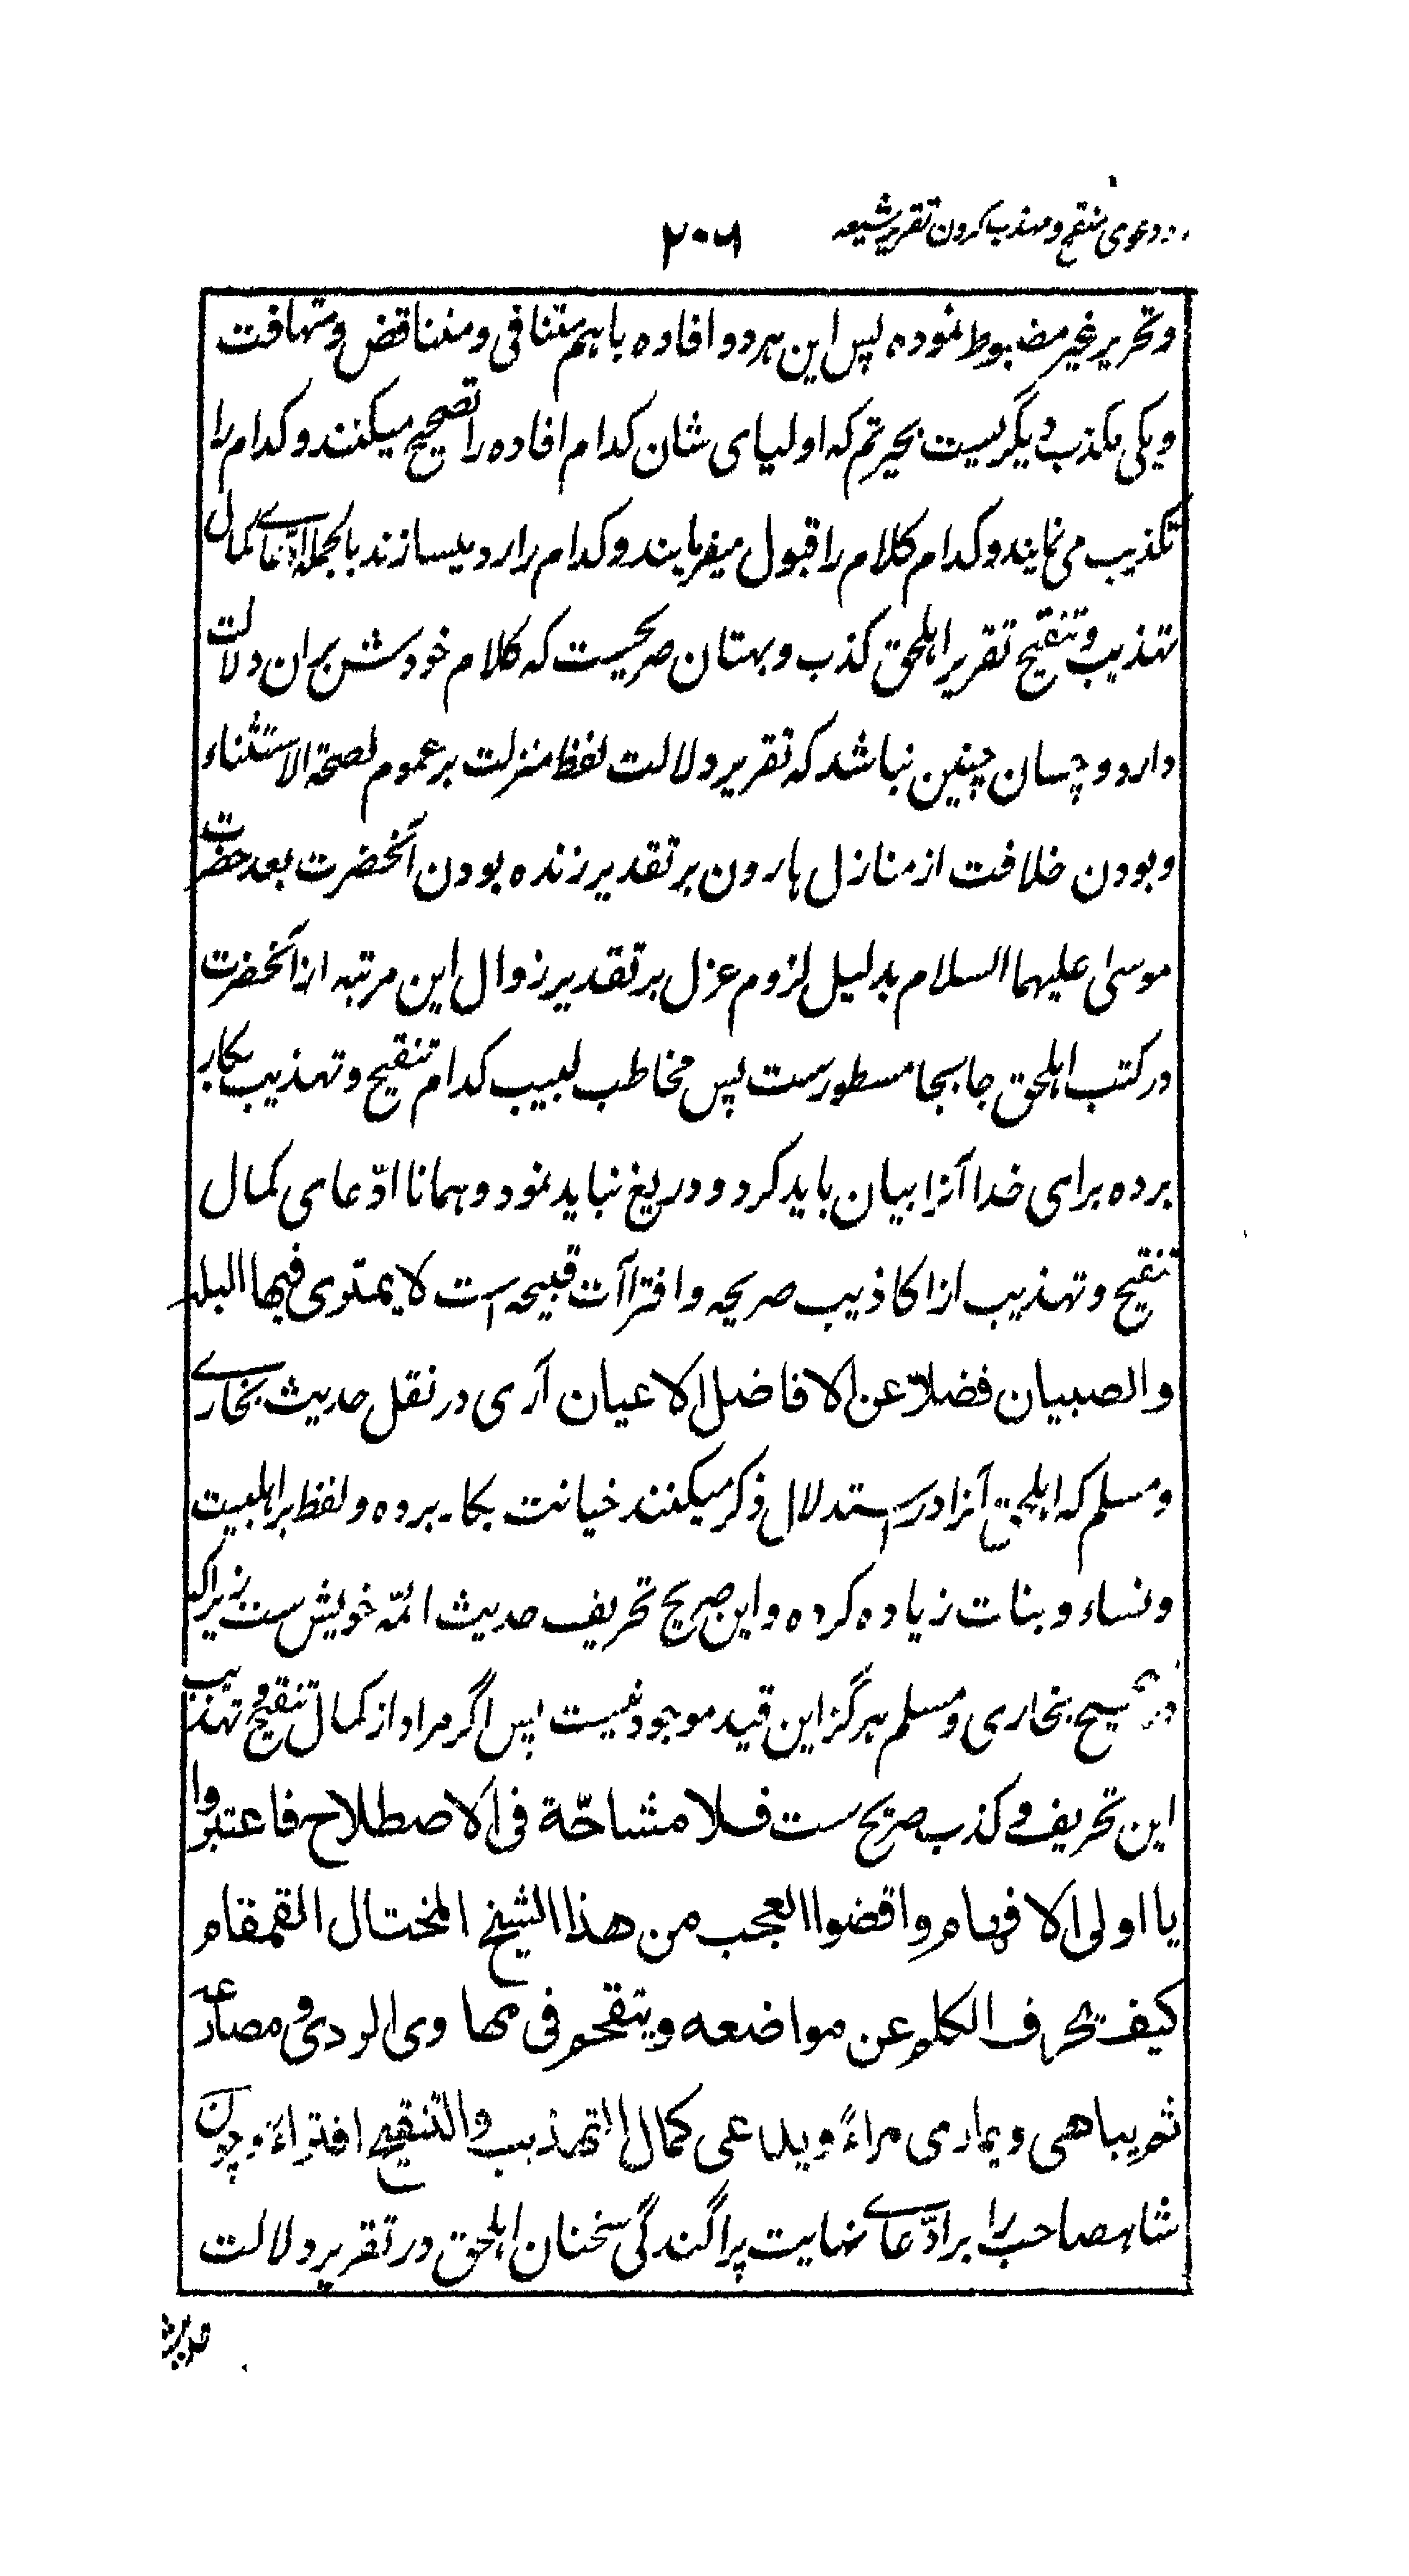 رد دعوی منقح و مهذب کردن تقریر شیعه
۲۰۶
و تحریر غیر مضبوط نموده پس این هر دو افاده باهم متنافی و متناقض و متهافت
و یکی مکذب دیگریست بحیرتم که اولیای شان کدام افاده را تصحیح میکنند و کدام را
تکذیب می نمایند و کدام کلام را قبول میفرمایند و کدام را رد میسازند بالجمله ادّعای کمال
تهذیب و تنقیح تقریر اهلحق کذب و بهتان صریحیست که کلام خودش بر ان دلالت
دارد و چسان چنین نباشد که تقریر دلالت لفظ منزلت بر عموم لصحة الاستثناء
و بودن خلافت از منازل هارون بر تقدیر زنده بودن آنحضرت بعد حضرت
موسیٰ علیهما السلام بدلیل لزوم عزل بر تقدیر زوال این مرتبه از آنحضرت
در کتب اهلحق جابجا مسطورست پس مخاطب لبیب کدام تنقیح و تهذیب بکار
برده برای خدا آنرا بیان باید کرد و دریغ نباید نمود و همانا ادّعای کمال
تنقیح و تهذیب از اکاذیب صریحه و افتراآت قبیحه است لا یمتری فیها البله
والصبیان فضلاً عن الافاضل الاعیان آری در نقل حدیث بخاری
و مسلم که اهلحق آنرا در استدلال ذکر میکنند خیانت بکار برده و لفظ بر اهلبیت
و نساء و بنات زیاده کرده و این صریح تحریف حدیث ائمّه خویش ست زیراکه
در صحیح بخاری و مسلم هرگز این قید موجود نیست پس اگر مراد از کمال تنقیح و تهذیب
این تحریف و کذب صریح ست فلا مشاحّة فی الاصطلاح فاعتبروا
یا اولی الافهام واقضوا العجب من هذا الشیخ المختال القمقام
کیف یحرف الکلم عن مواضعه ویتقحم فی مهاوی الردی و مصارعه
ثم یباهی ویماری مراءً ویدّعی کمال التهذیب والتنقیح افتراءً و چون
شاهصاحب را بر ادّعای نهایت پراگندگی سخنان اهلحق در تقریر دلالت